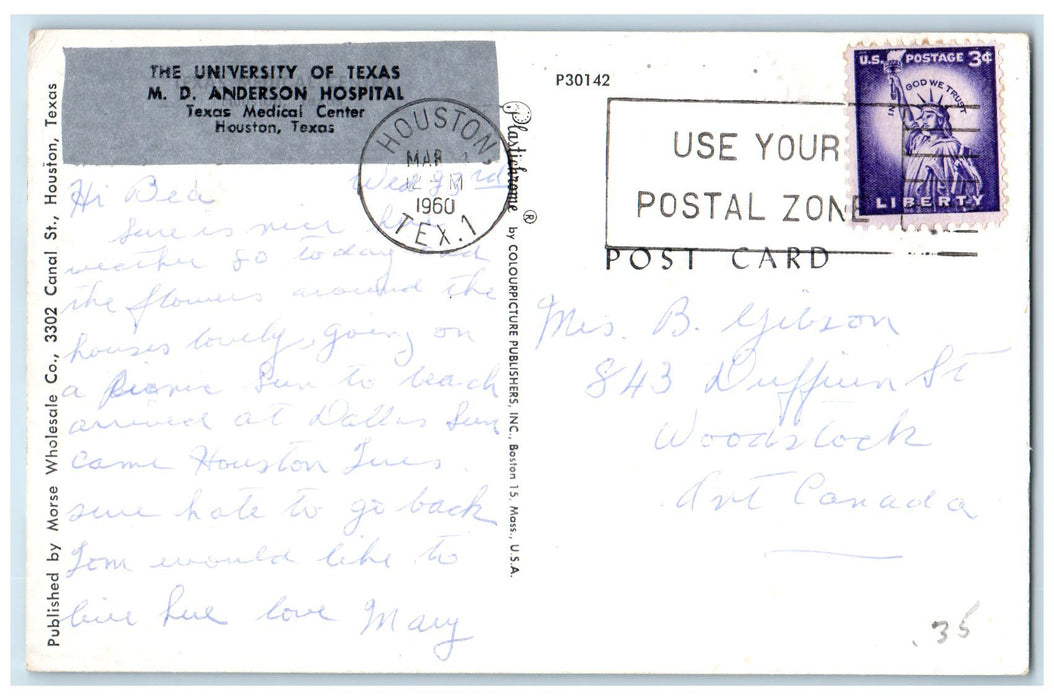 THE UNIVERSITY OF TEXAS
M. D. ANDERSON HOSPITAL
Texas Medical Center
Houston, Texas
HOUSTON,
MAR
M
1960
TEX. 1
P30142
USE YOUR
POSTAL ZONE
U.S. POSTAGE 3¢
IN GOD WE TRUST
LIBERTY
POST CARD
Published by Morse Wholesale Co., 3302 Canal St., Houston, Texas
Plastichrome ® by COLOURPICTURE PUBLISHERS, INC., Boston 15, Mass., U.S.A.
Wed
Hi Bea
sure is nice here
weather 80 today and
the flowers around the
houses lovely, going on
a picnic Sun to beach
arrived at Dallas Sun
came Houston Tues.
sure hate to go back
Tom would like to
live here love Mary
Mrs. B. Gibson
843 St
Woodstock
Ont Canada
.35